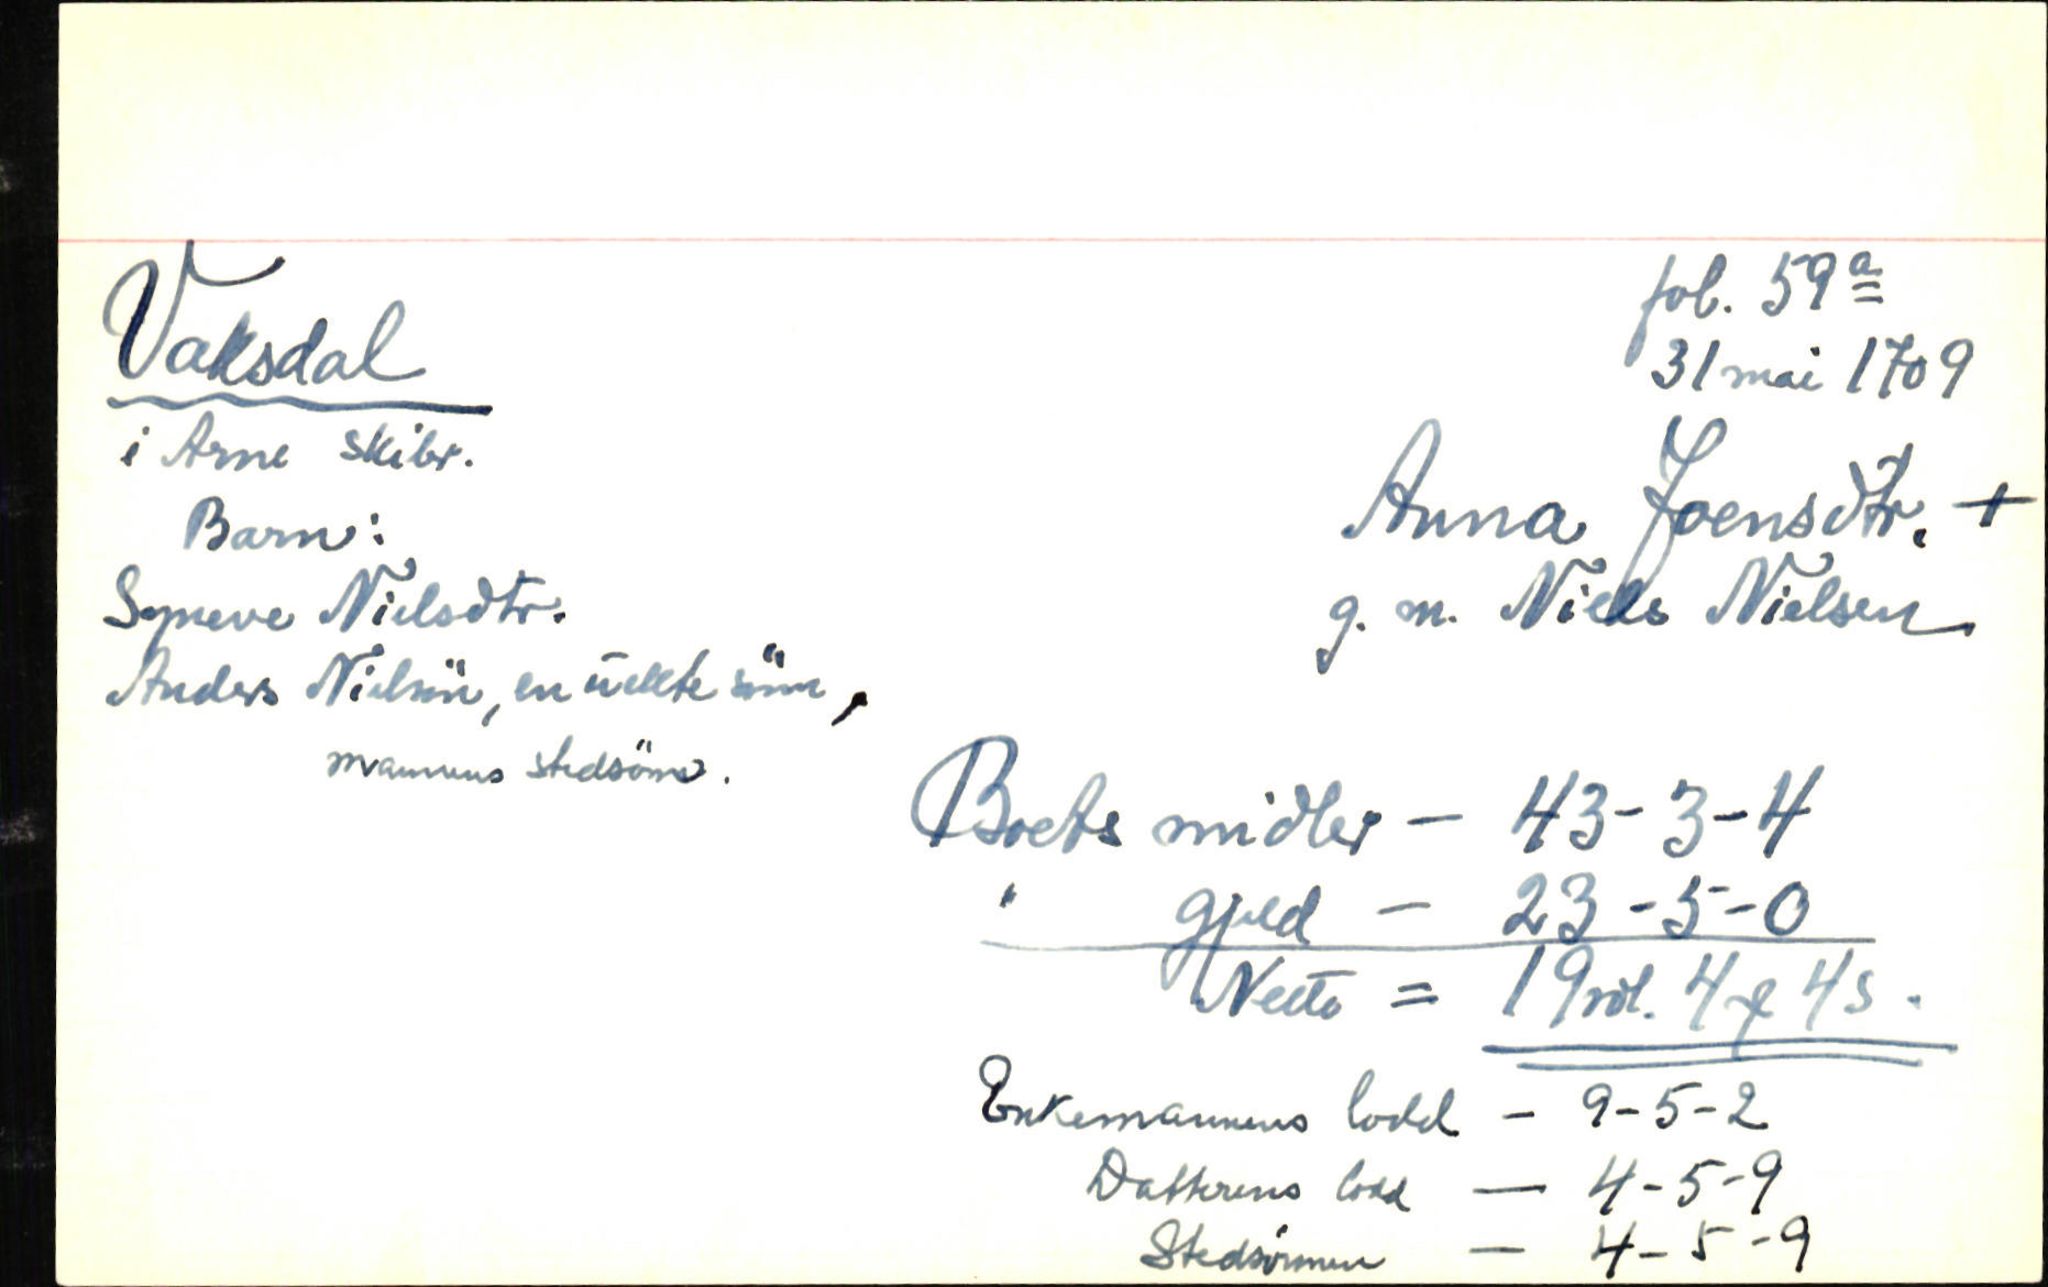 Vaksdal
i Arne skibr.
Barn:
Syneve Nielsdtr.
Anders Nielsön, en uekte sönn,
mannens stedsönn.
fol. 59a
31 mai 1709
Anna Joensdtr. +
g. m. Niels Nielsen
Boets midler - 43-3-4
" gjeld - 23-5-0
Netto = 19 rdl. 4 ꝣ 4 s.
Enkemannens lodd - 9-5-2
Datterens lodd - 4-5-9
Stedsönnen - 4-5-9